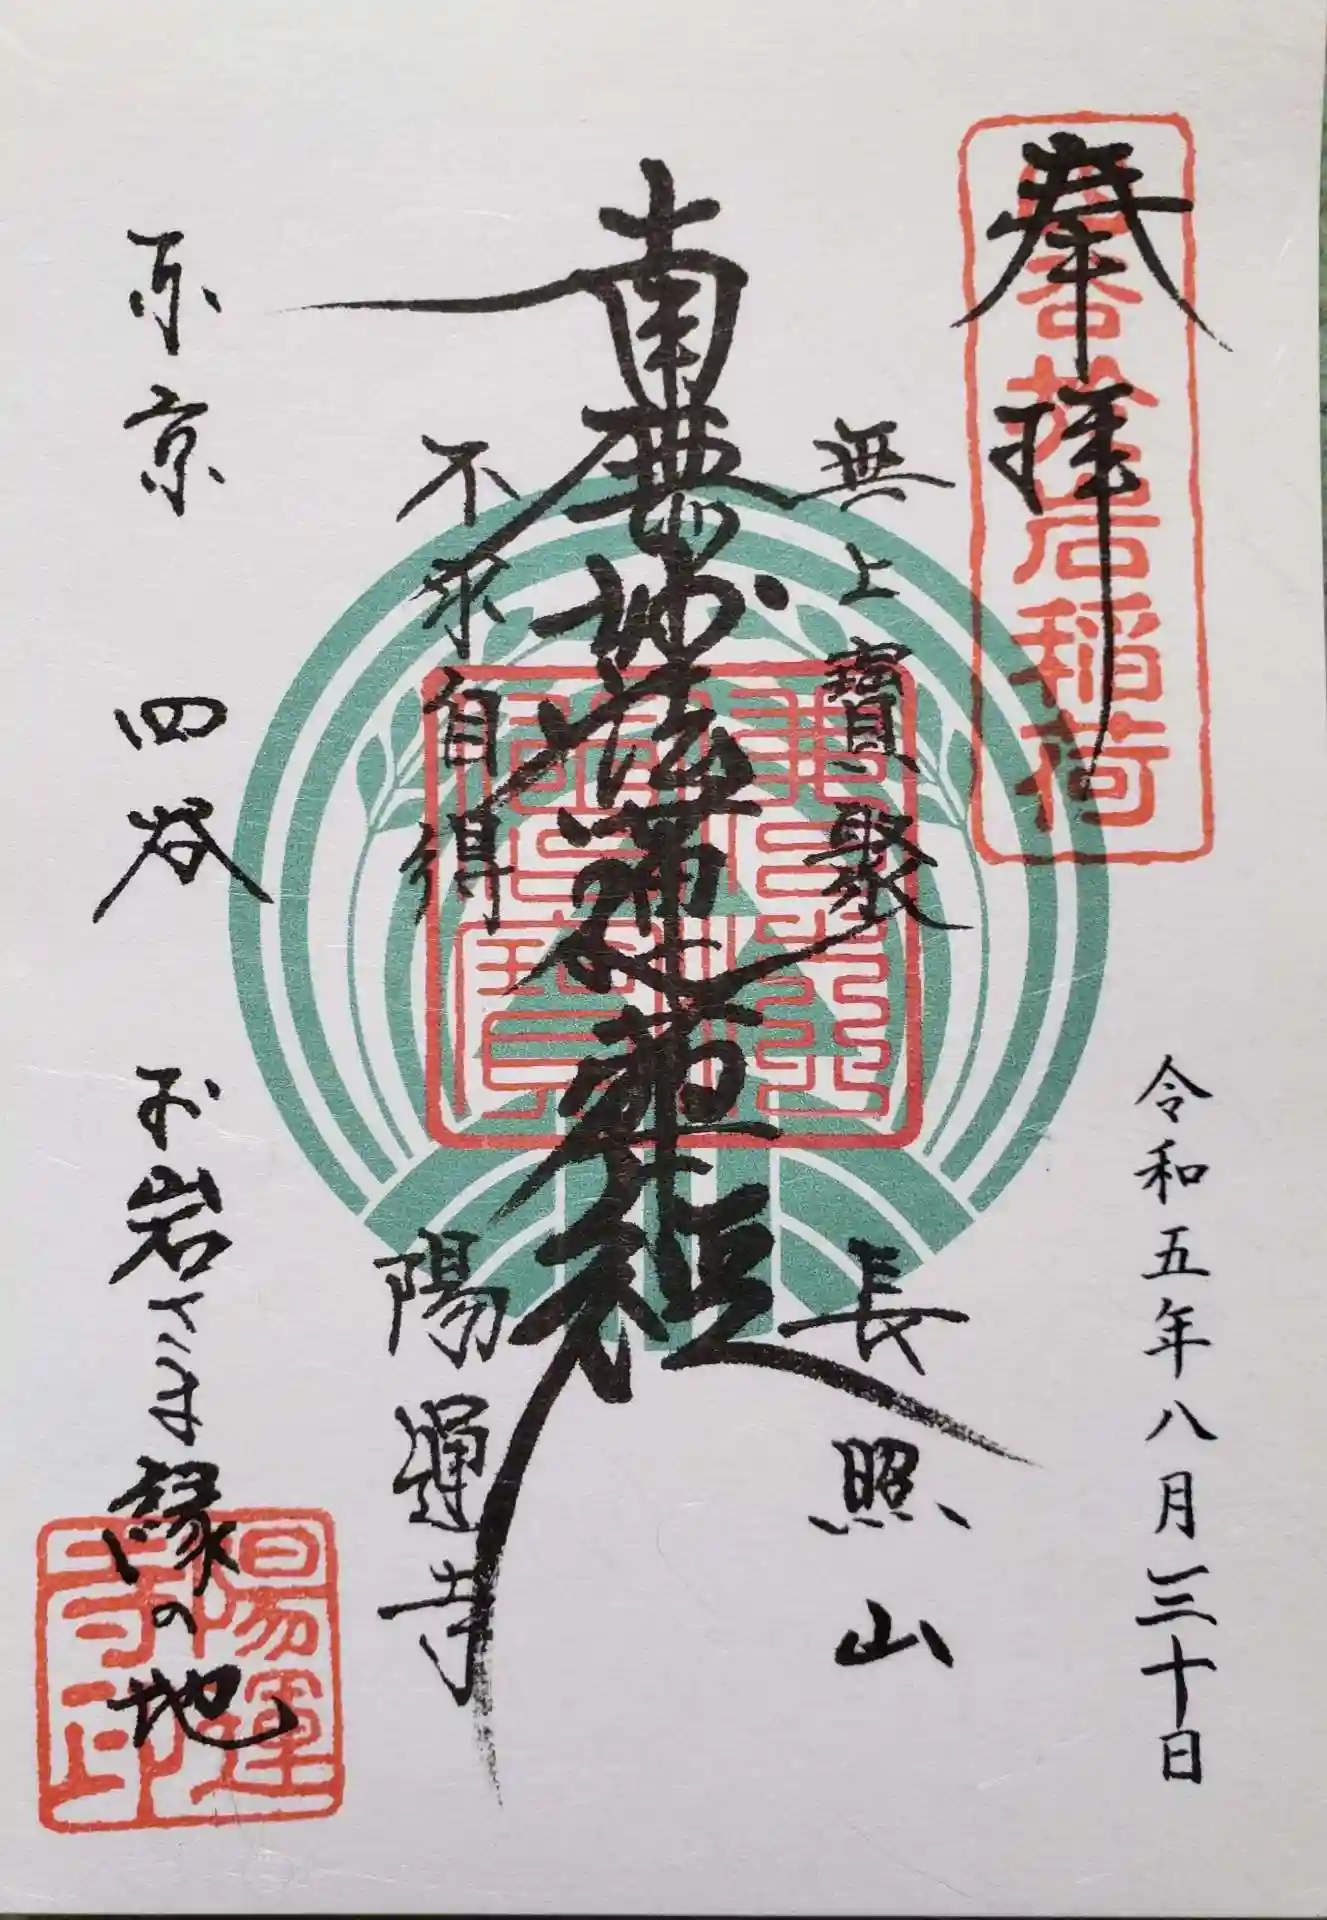 奉拝
令和五年八月三十日
無上寶聚
長照山
南無妙法蓮華経
不求自得
陽運寺
東京 四谷 お岩さま縁の地
陽運寺印